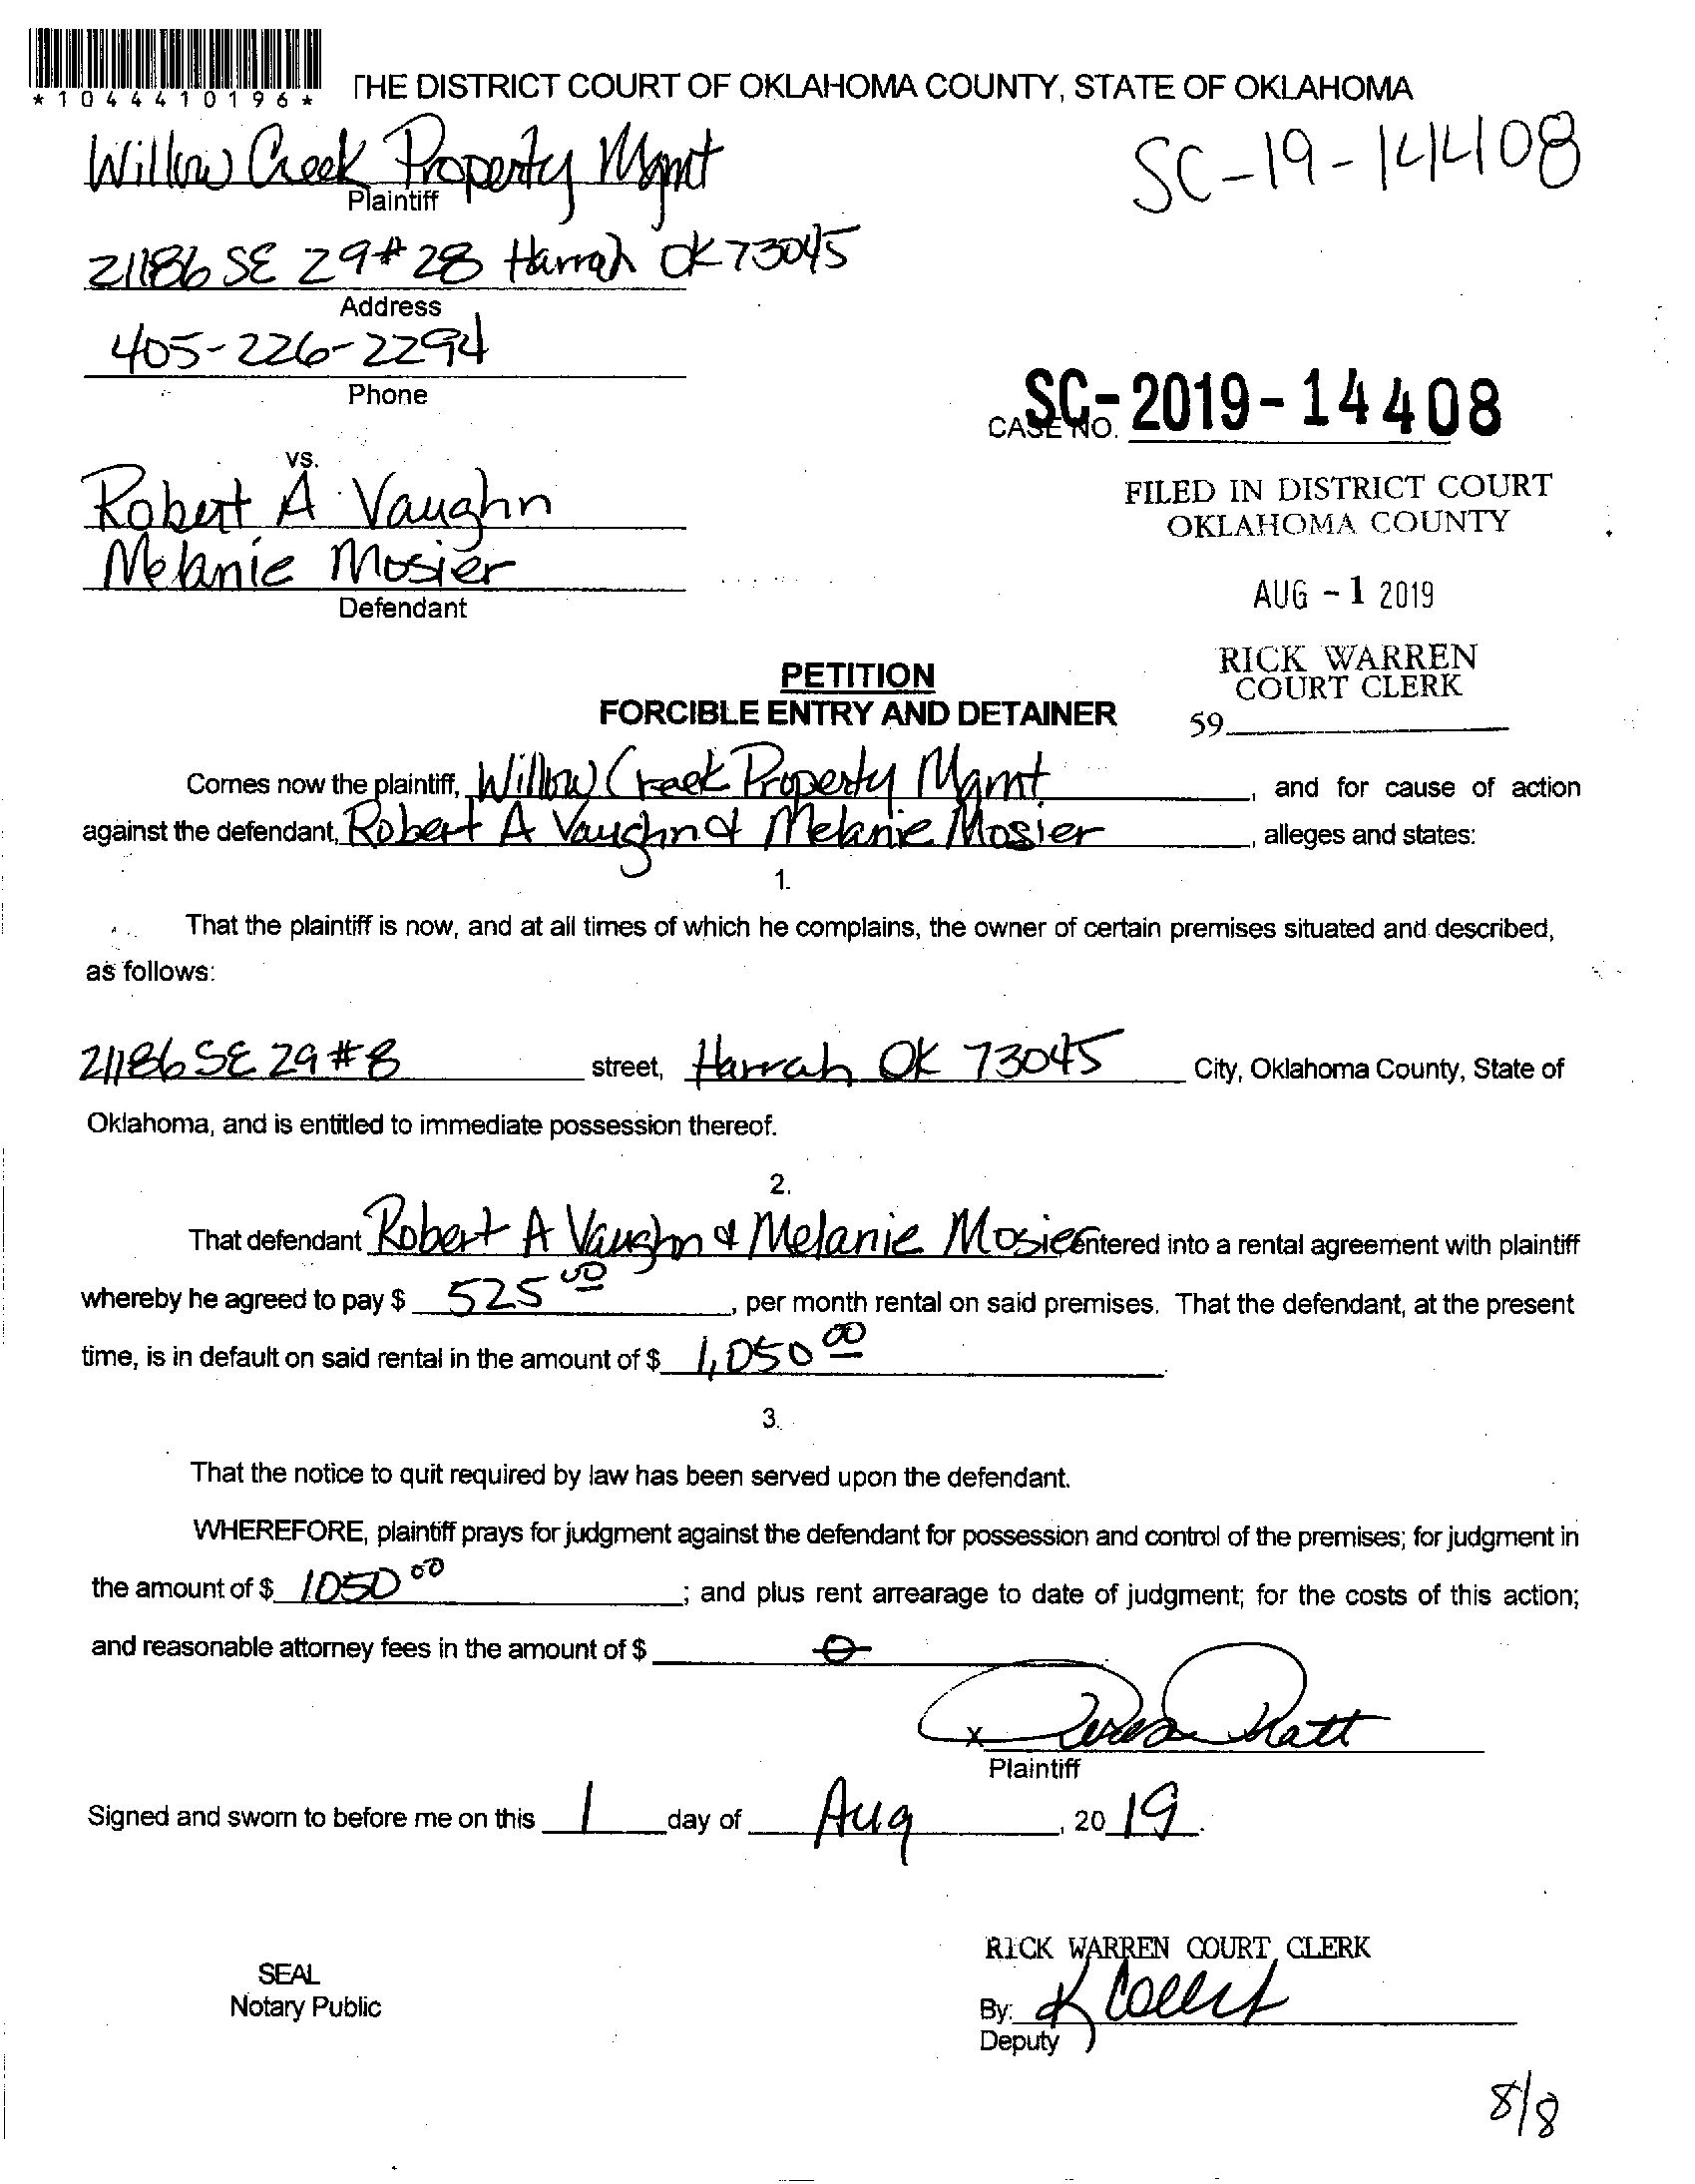 *1044410196*
THE DISTRICT COURT OF OKLAHOMA COUNTY, STATE OF OKLAHOMA
Willow Creek Property Mgmt
Plaintiff
SC-19-14408
21186 SE 29 # 28 Harrah OK 73045
Address
405-226-2294
Phone
CASE NO. SC-2019-14408
vs.
Robert A Vaughn
Melanie Mosier
Defendant
FILED IN DISTRICT COURT
OKLAHOMA COUNTY
AUG -1 2019
RICK WARREN
COURT CLERK
59
PETITION
FORCIBLE ENTRY AND DETAINER
Comes now the plaintiff, Willow Creek Property Mgmt, and for cause of action
against the defendant, Robert A Vaughn & Melanie Mosier, alleges and states:
1.
That the plaintiff is now, and at all times of which he complains, the owner of certain premises situated and described,
as follows:
21186 SE 29 # 8 street, Harrah OK 73045 City, Oklahoma County, State of
Oklahoma, and is entitled to immediate possession thereof.
2.
That defendant Robert A Vaughn & Melanie Mosier entered into a rental agreement with plaintiff
whereby he agreed to pay $ 525 00, per month rental on said premises. That the defendant, at the present
time, is in default on said rental in the amount of $ 1,050 00.
3.
That the notice to quit required by law has been served upon the defendant.
WHEREFORE, plaintiff prays for judgment against the defendant for possession and control of the premises; for judgment in
the amount of $ 1050 00; and plus rent arrearage to date of judgment; for the costs of this action;
and reasonable attorney fees in the amount of $ 0
x Pratt
Plaintiff
Signed and sworn to before me on this 1 day of Aug, 20 19.
RICK WARREN COURT CLERK
SEAL
Notary Public
By: K
Deputy
8/8